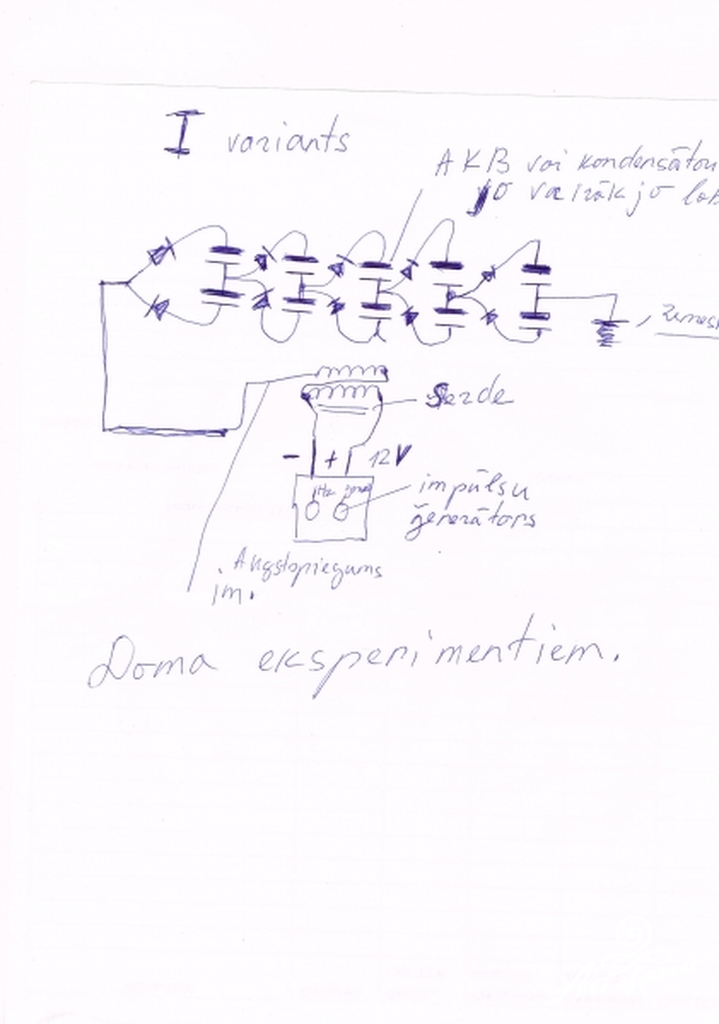 I variants
AKB vai kondensātori
jo vairāk jo lab
Zemes
Serde
- + 12V
Hz
impulsu
ģenerātors
Augstspriegums
Doma eksperimentiem.